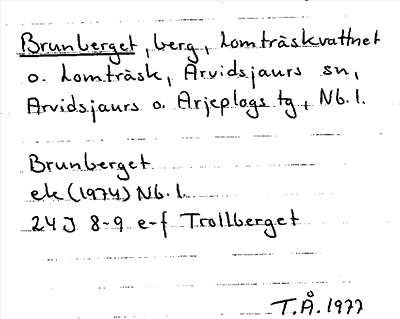 Brunberget, berg, Lomträskvattnet
o. Lomträsk, Arvidsjaurs sn,
Arvidsjaurs o. Arjeplogs tg, Nb.l.
Brunberget
ek (1974) Nb.l.
24J 8-9 e-f Trollberget
T.Å. 1977